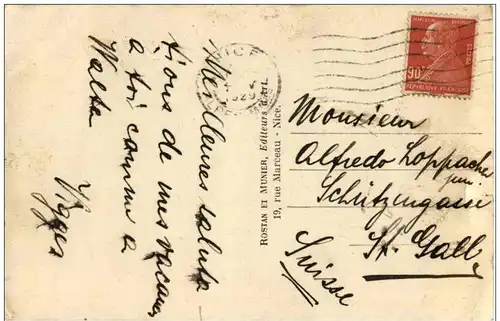 Meilleures saluta
tions de mes vacan
a toi comme a
Walta
Viggo
ROSTAN ET MUNIER, Editeurs d'Art.
19, rue Marceau - Nice.
NICE
BERTHELOT
90c
REPUBLIQUE FRANÇAISE
Monsieur
Alfredo Loppacher
jun.
Schützengasse
St. Gall
Suisse